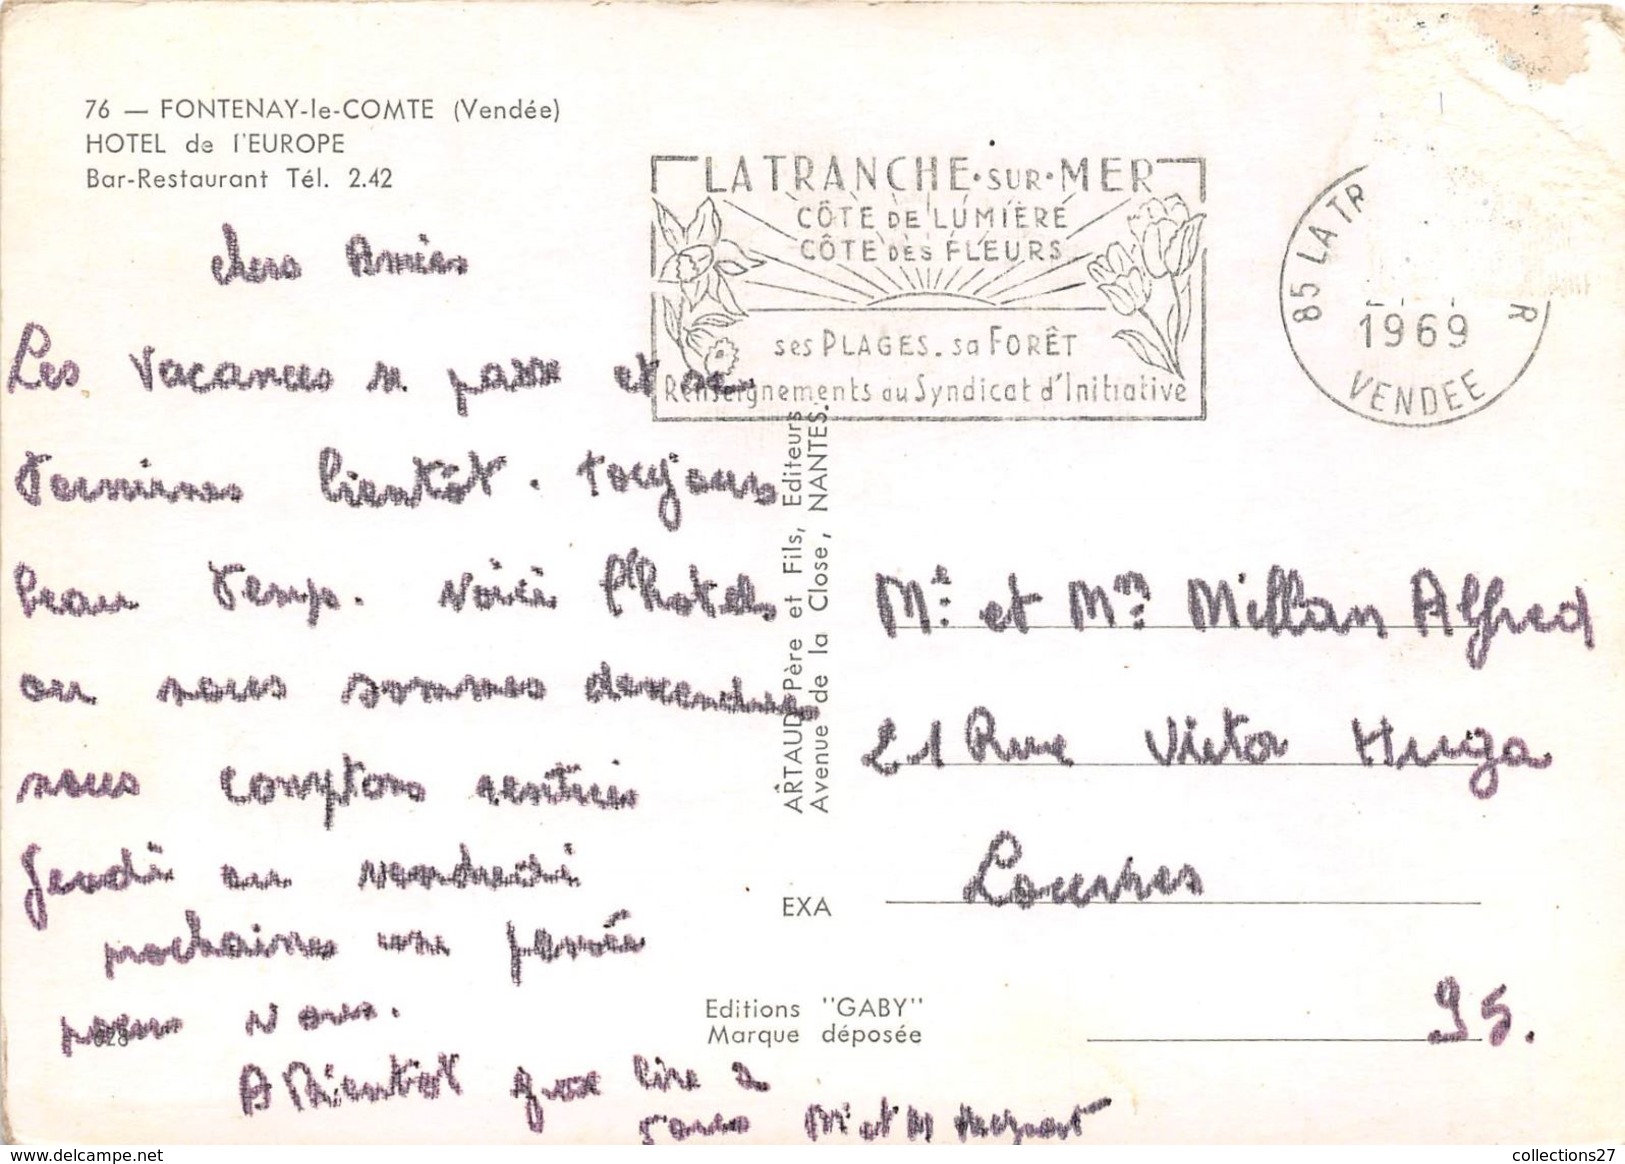 76 — FONTENAY-le-COMTE (Vendée)
HOTEL de l'EUROPE
Bar-Restaurant Tél. 2.42
LA TRANCHE·SUR·MER
CÔTE DE LUMIÈRE
CÔTE DES FLEURS
ses PLAGES. sa FORÊT
Renseignements au Syndicat d'Initiative
85 LA TR R
1969
VENDEE
chers Amies
Les Vacances se passe et se
Termines bientôt. Toujours
beau Temps. Voici l'hotel
ou nous sommes descendus
nous comptons rentrer
Jeudi ou vendredi
prochaines une pensée
pour vous.
A Bientôt lire 2
M. et M
ARTAUD Père et Fils, Editeurs
Avenue de la Close, NANTES.
Mr. et Mm: Millan Alfred
21 Rue Victor Hugo
Louvres
95.
EXA
Editions "GABY"
Marque déposée
028
collections27